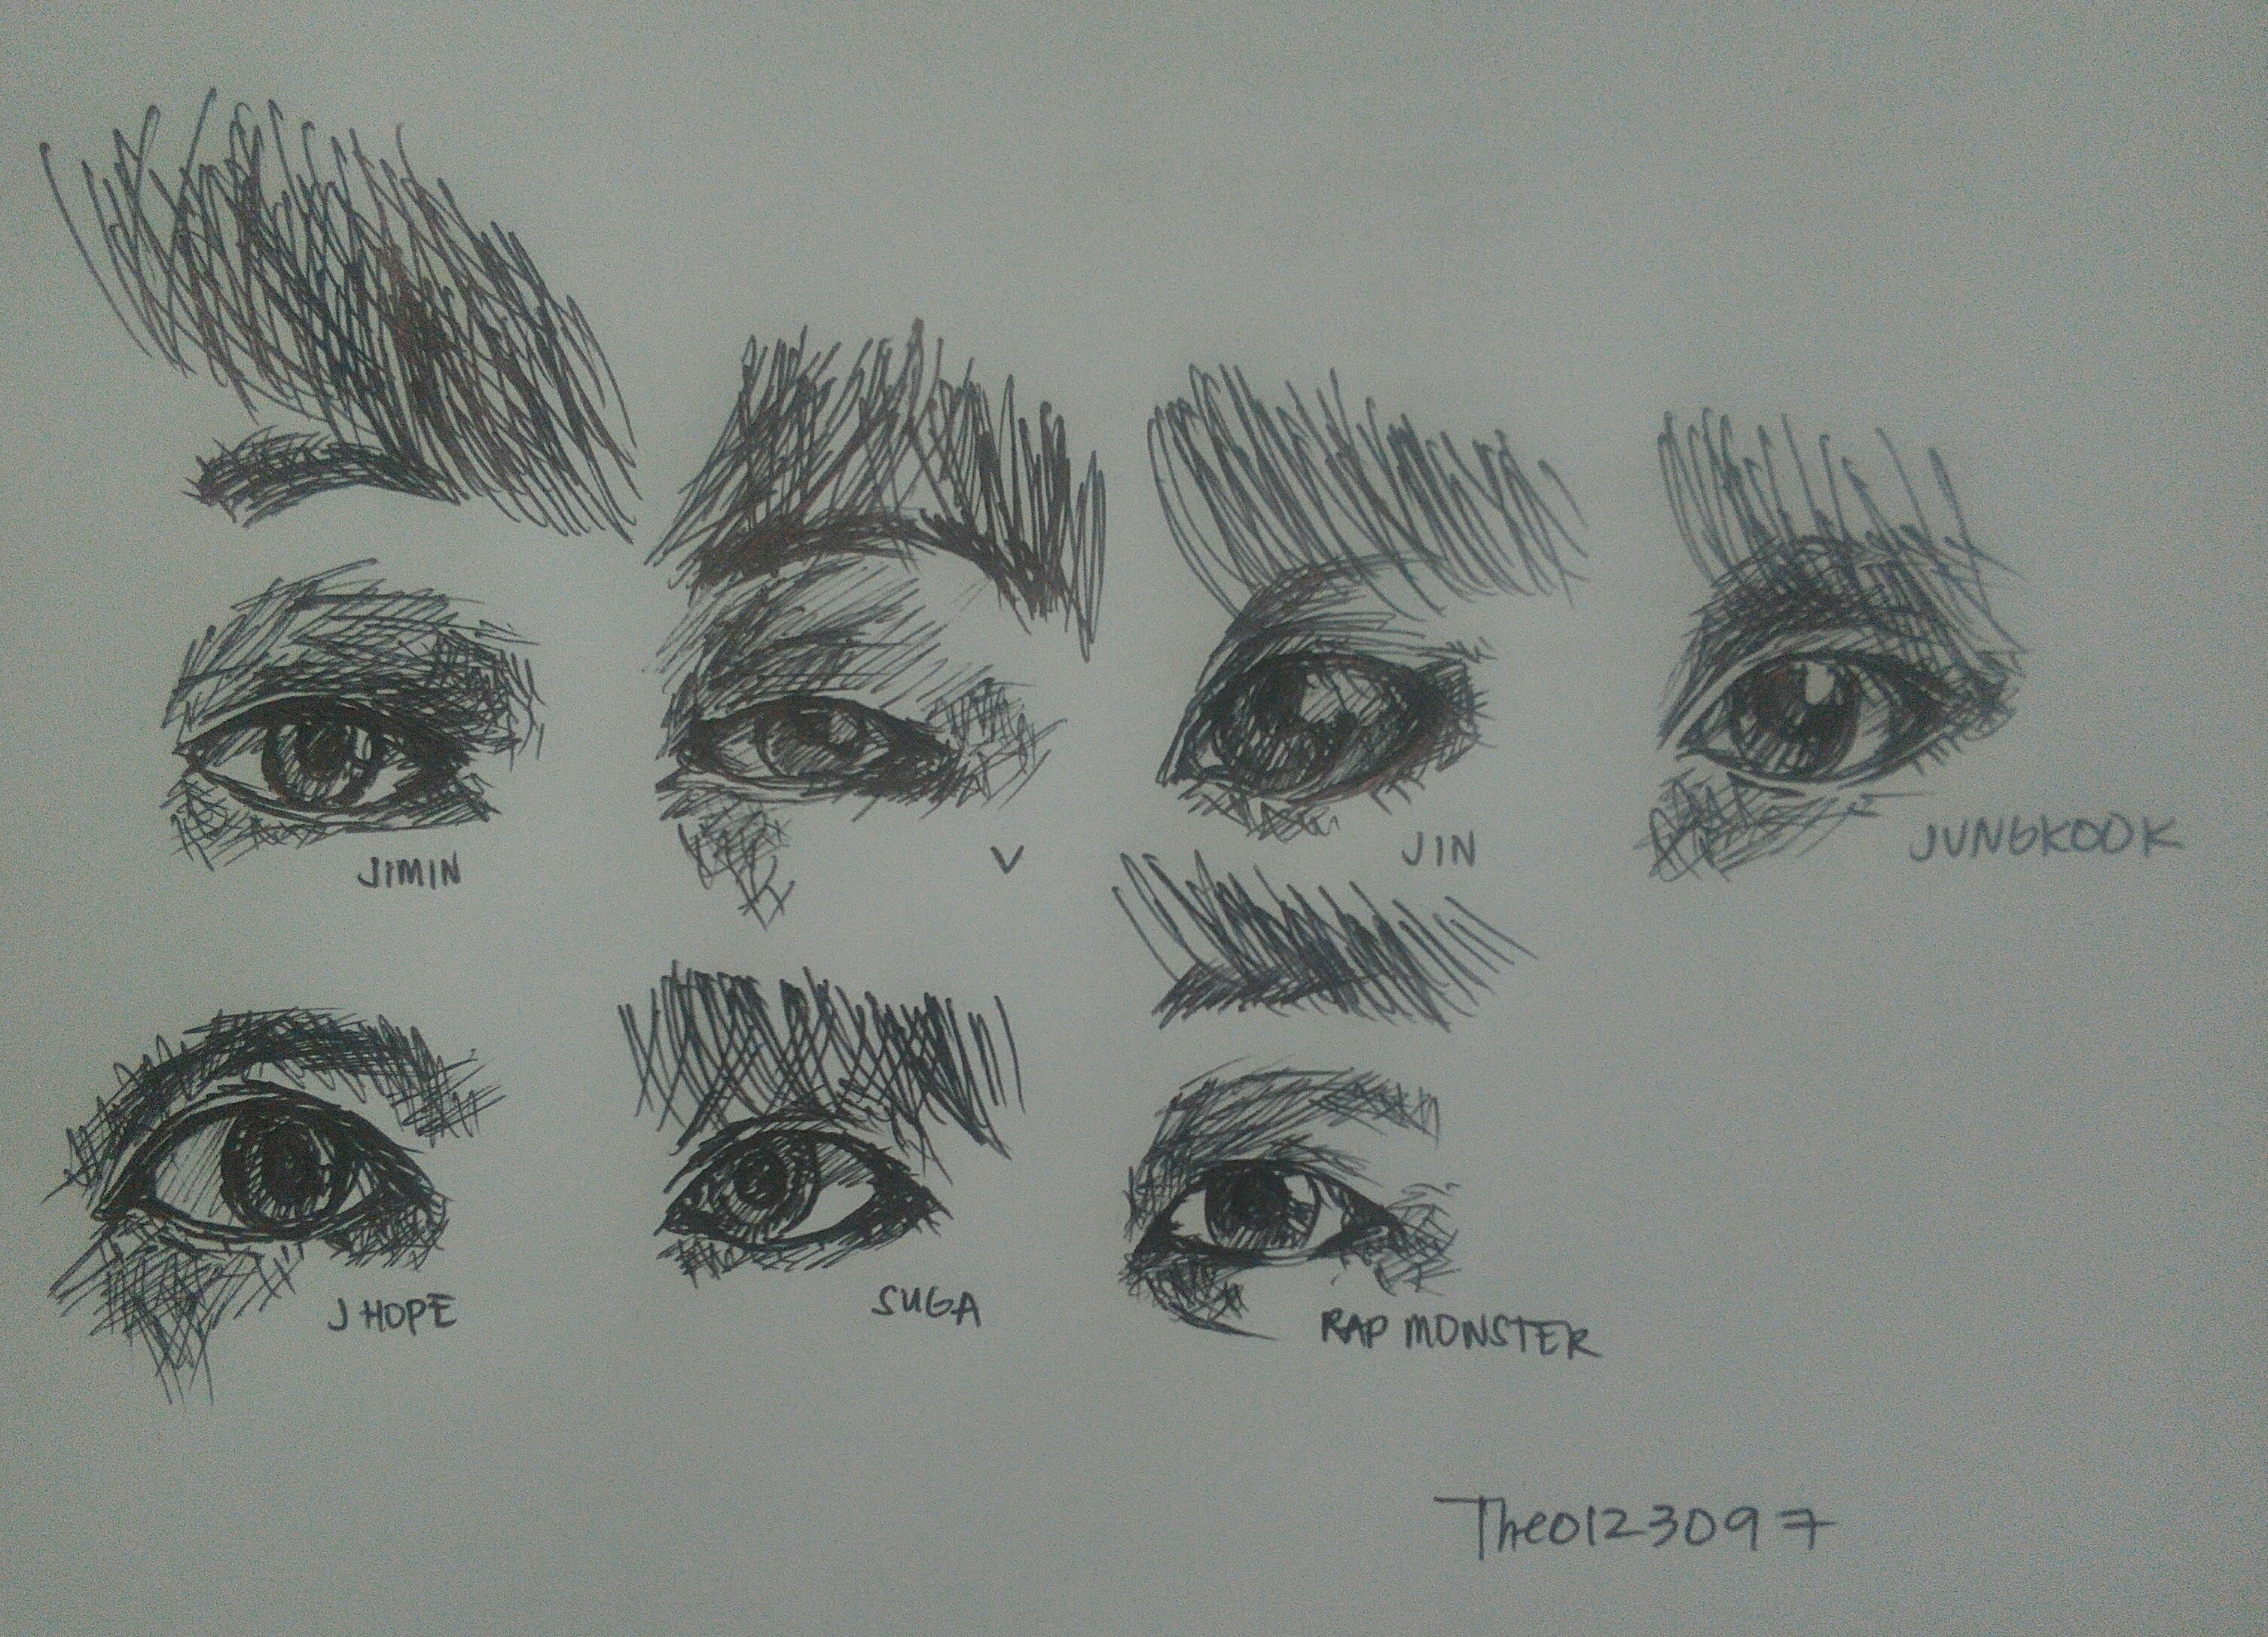 JIMIN
V
JIN
JUNGKOOK
J HOPE
SUGA
RAP MONSTER
Theo123097